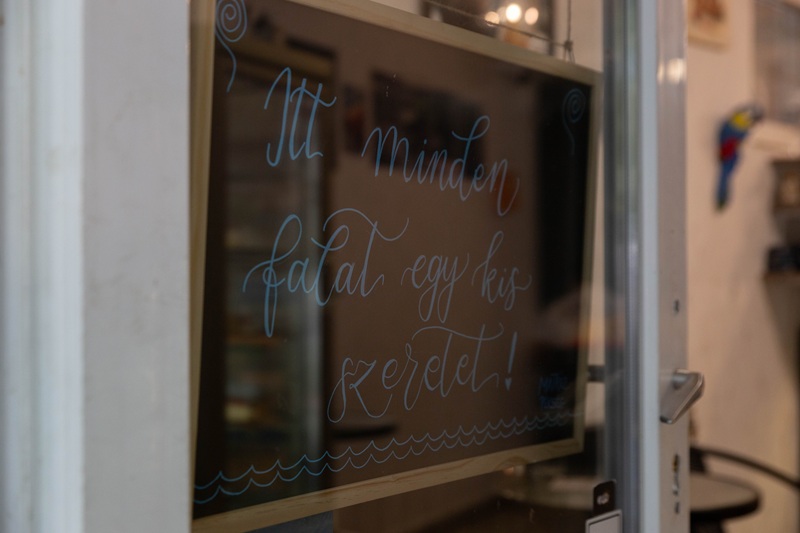 Itt minden
falat egy kis
szeretet!